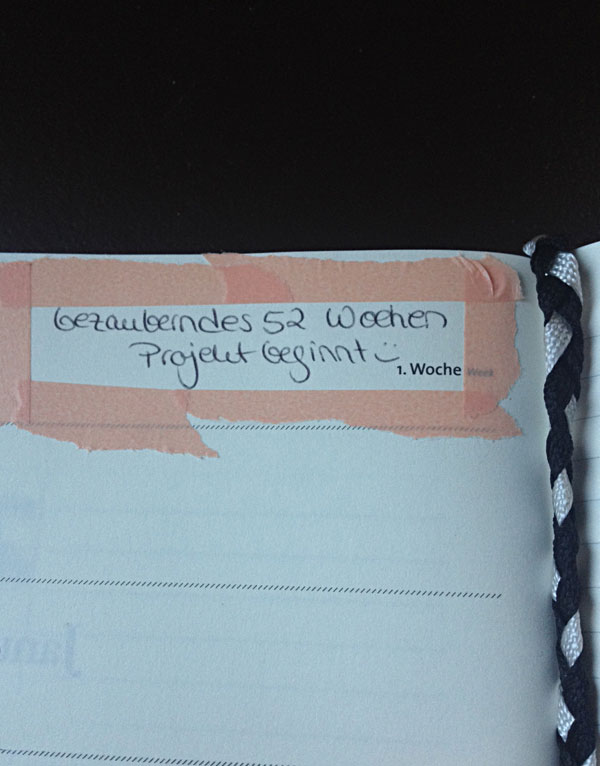 bezauberndes 52 Wochen
Projekt beginnt :)
1. Woche Week
Janu